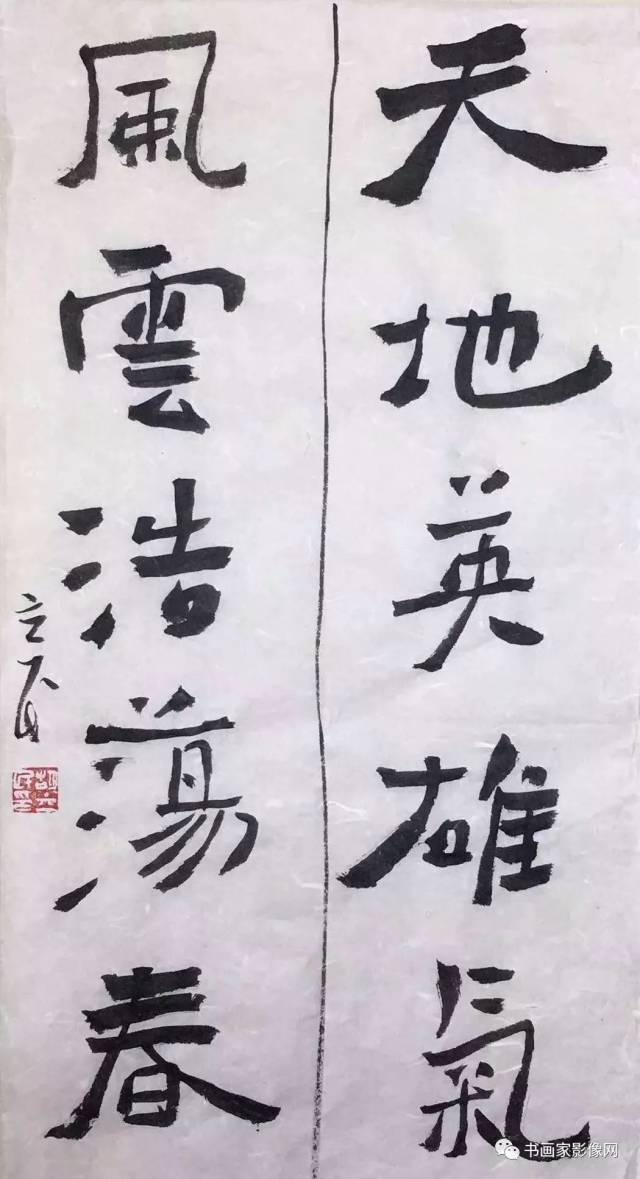 天地英雄氣
風雲浩蕩春
立民
书画家影像网